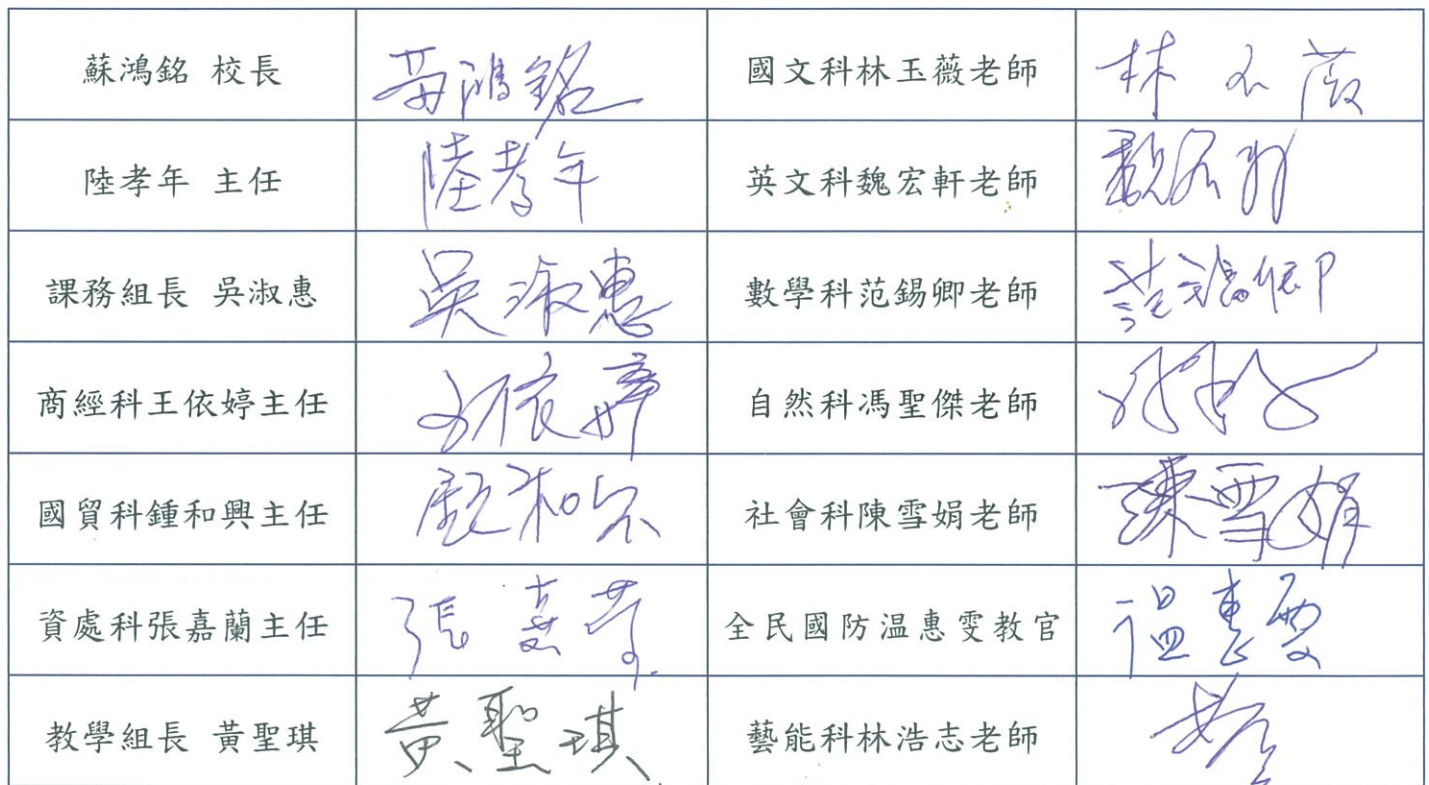 蘇鴻銘 校長 蘇鴻銘 國文科林玉薇老師 林玉薇
陸孝年 主任 陸孝年 英文科魏宏軒老師 魏宏軒
課務組長 吳淑惠 吳淑惠 數學科范錫卿老師 范錫卿
商經科王依婷主任 王依婷 自然科馮聖傑老師
國貿科鍾和興主任 社會科陳雪娟老師 陳雪娟
資處科張嘉蘭主任 張嘉蘭 全民國防温惠雯教官 温惠雯
教學組長 黃聖琪 黃聖琪 藝能科林浩志老師